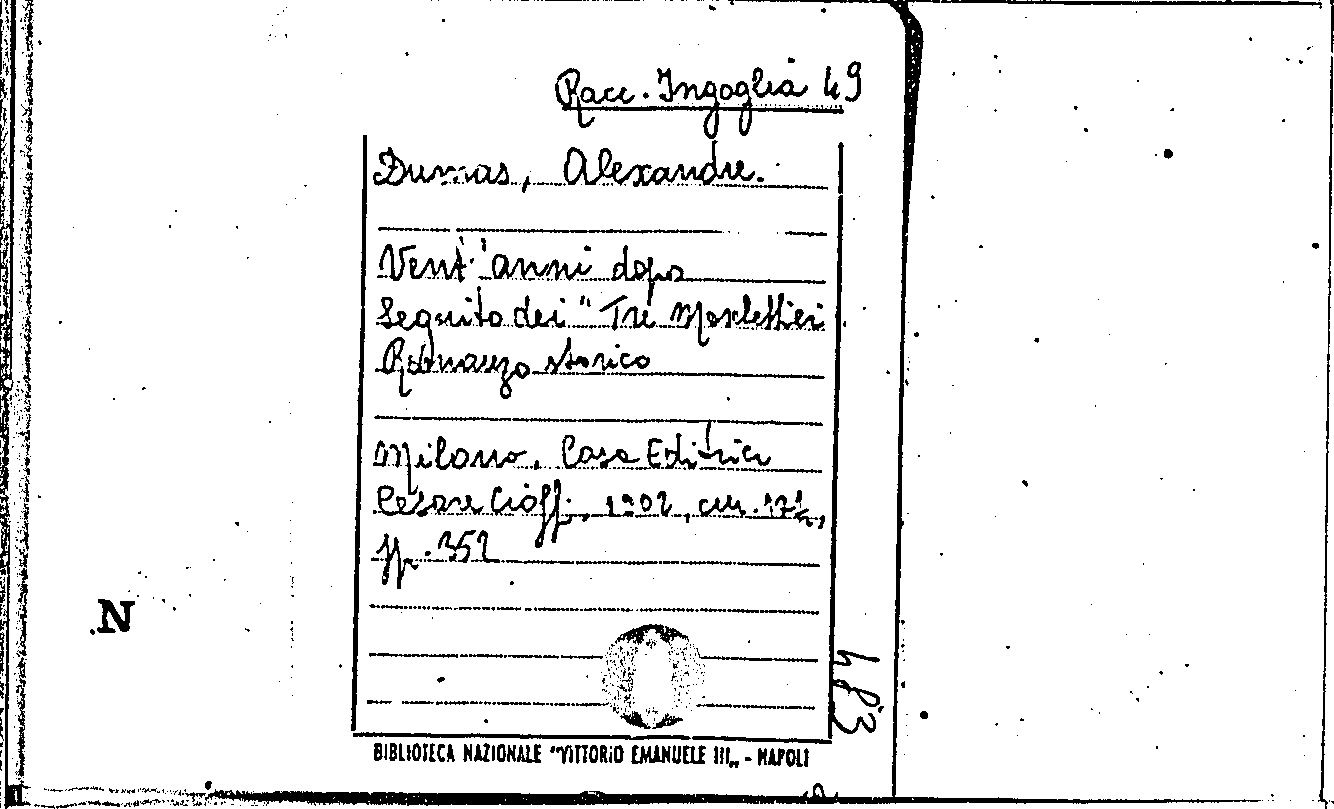 Racc. Ingoglia 49
Dumas, Alexandre.
Vent'anni dopo
Seguito dei "Tre Moschettieri
Romanzo storico
Milano, Casa Editrice
Cesare Cioffi, 1902, cm. 17½,
pp. 352
N
483
BIBLIOTECA NAZIONALE "VITTORIO EMANUELE III„ - NAPOLI